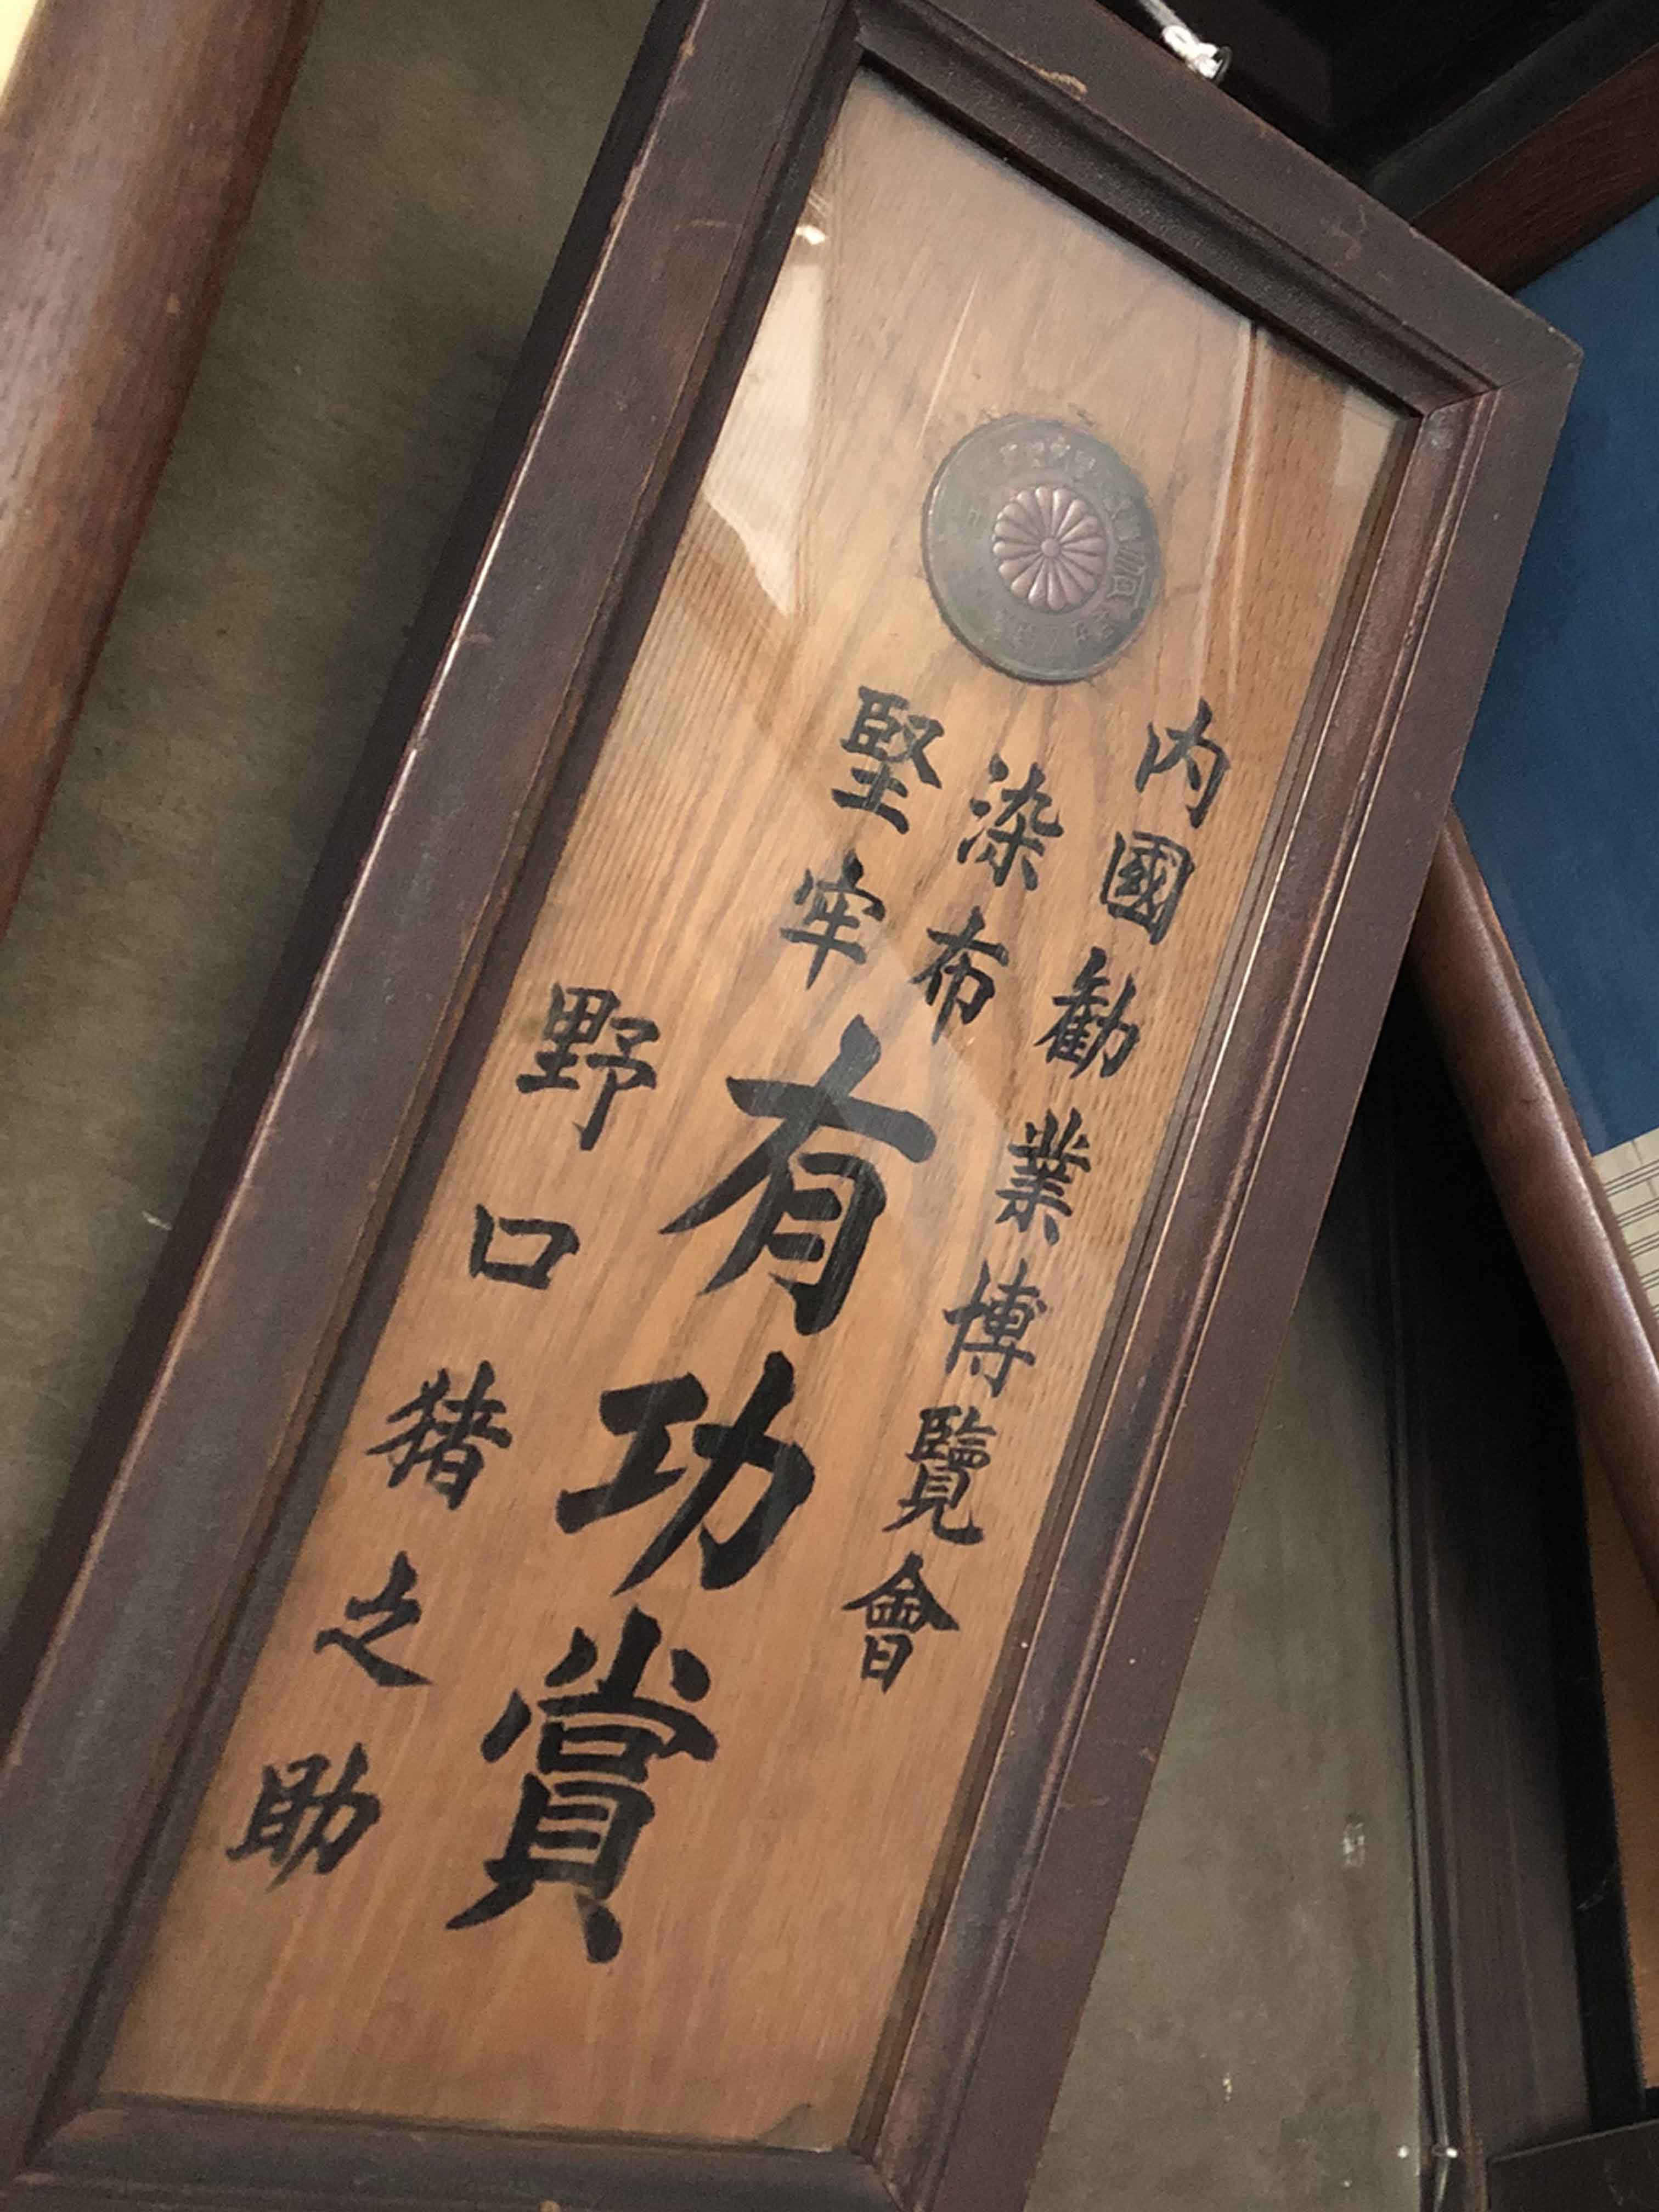 内國勧業博覽會
染布
堅牢
有功賞
野口猪之助